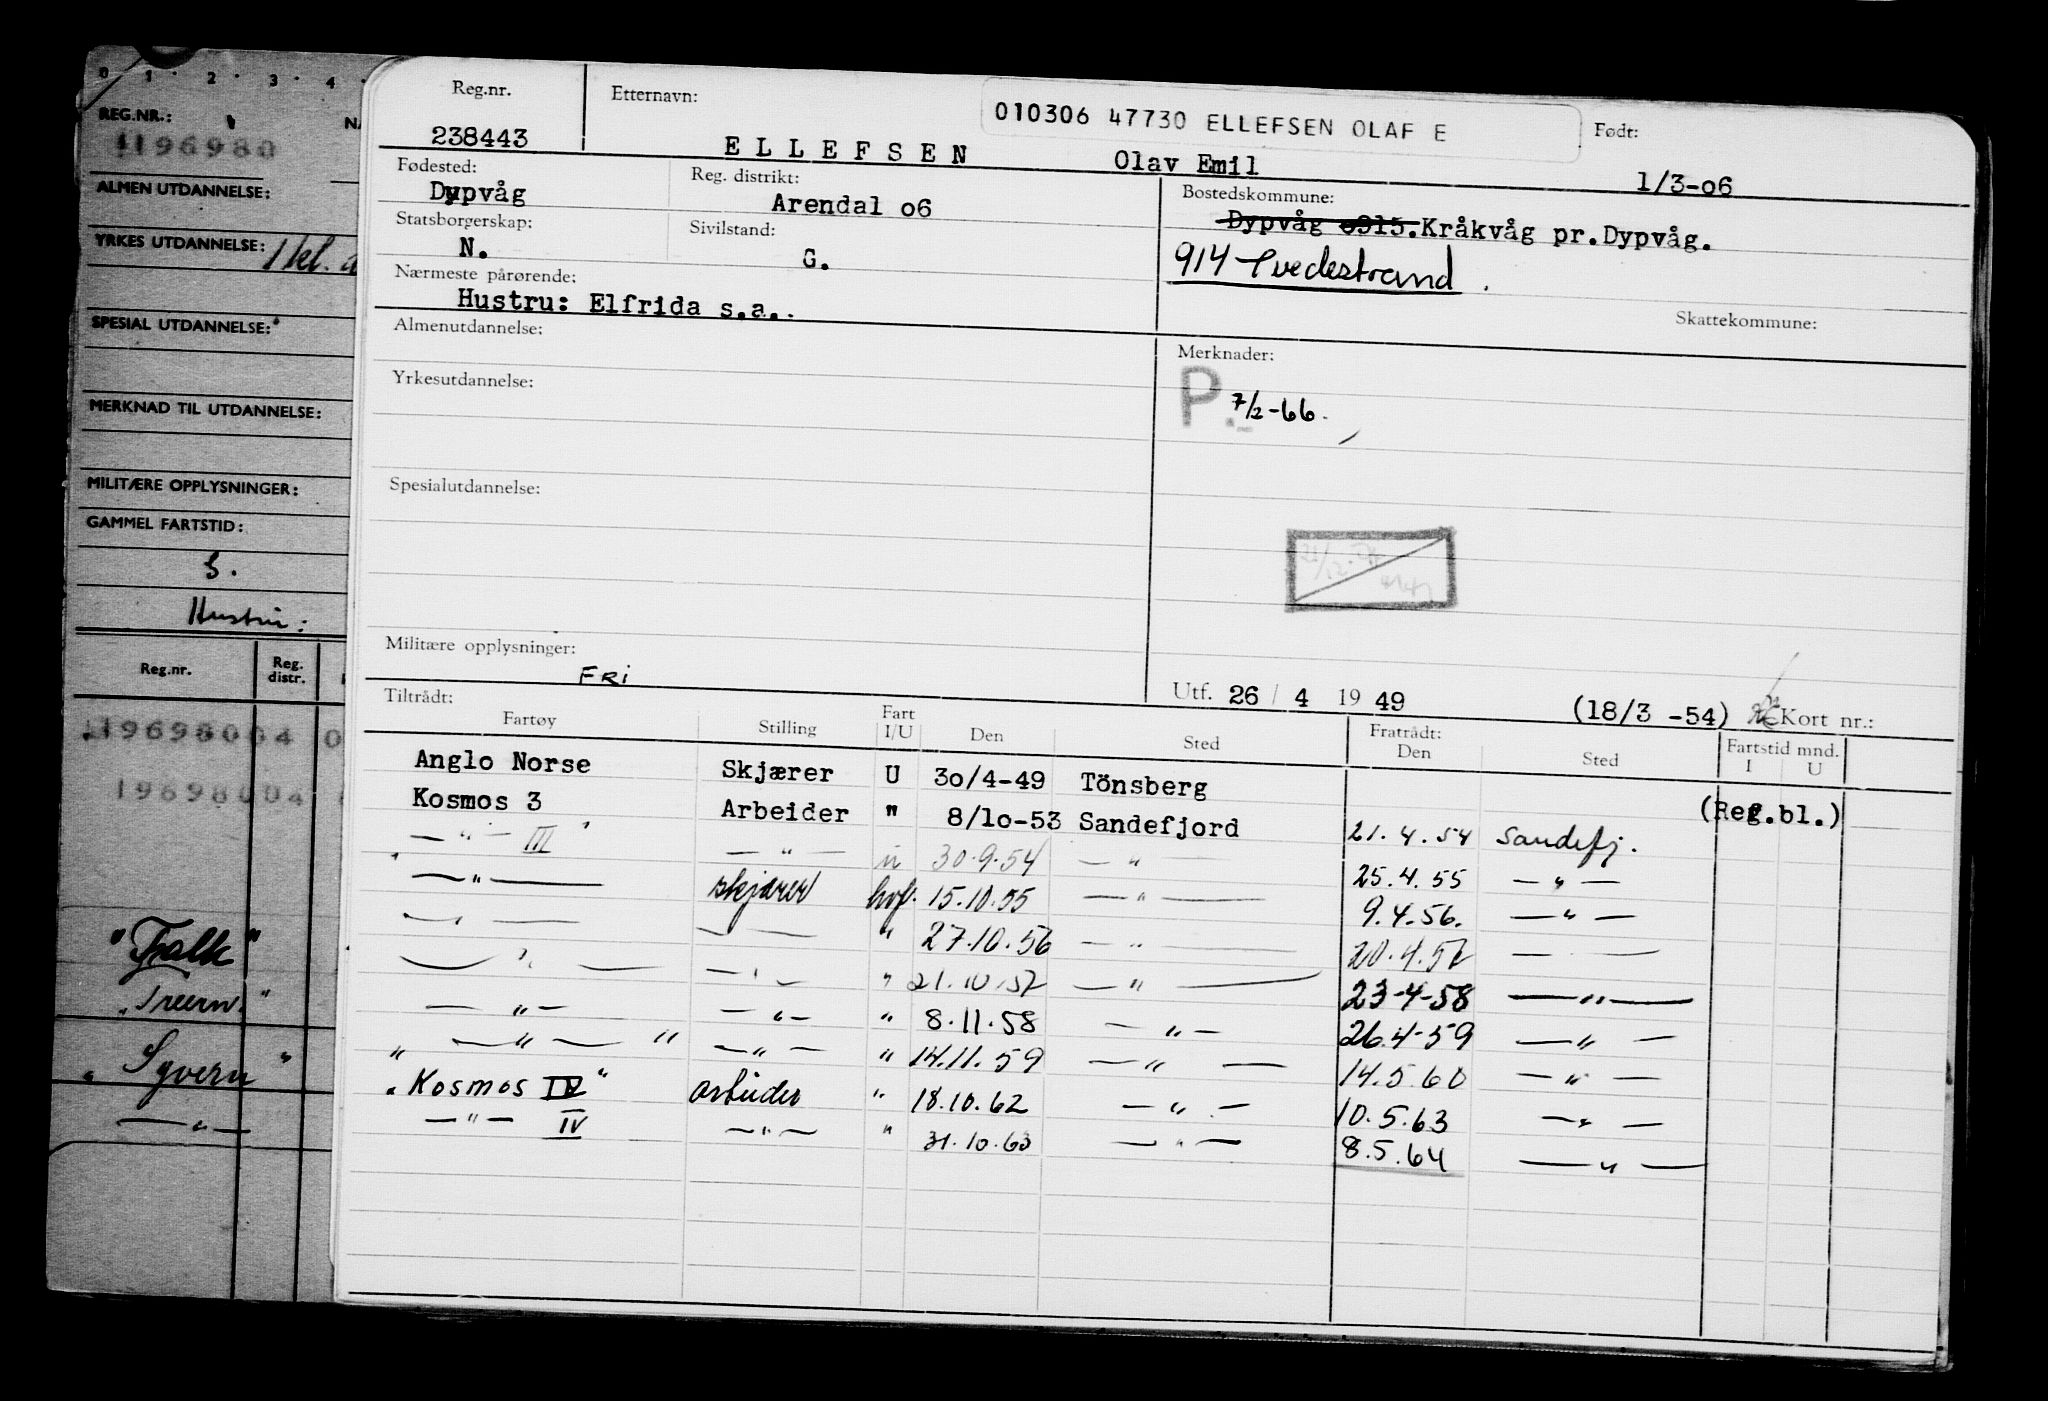 0 1 2 3 4
REG.NR.:
1196980
ALMEN UTDANNELSE:
YRKES UTDANNELSE: 1 kl.
SPESIAL UTDANNELSE:
MERKNAD TIL UTDANNELSE:
MILITÆRE OPPLYSNINGER:
GAMMEL FARTSTID:
Hustru:
Reg.nr. Reg. distr.
119698004 0
19698004
"Falk"
"Treern"
"Syvern"
— " —
Reg.nr. Etternavn: 010306 47730 ELLEFSEN OLAF E Født:
238443 E L L E F S E N Olav Emil 1/3-o6
Fødested: Reg. distrikt: Bostedskommune:
Dypvåg Arendal o6 Dypvåg o915. Kråkvåg pr. Dypvåg.
Statsborgerskap: Sivilstand:
N. G. 914 Tvedestrand.
Nærmeste pårørende:
Hustru: Elfrida s.a.. Skattekommune:
Almenutdannelse: Merknader:
P. 7/2-66.
Yrkesutdannelse:
Spesialutdannelse:
Militære opplysninger:
FRI
Utf. 26 / 4 19 49 (18/3 -54) Kort nr.:
Tiltrådt: Fratrådt: Fartstid mnd.
Fartøy Stilling Fart I/U Den Sted Den Sted I U
Anglo Norse Skjærer U 3o/4-49 Tönsberg (Reg.bl.)
Kosmos 3 Arbeider " 8/lo-53 Sandefjord 21.4.54 Sandefj.
— " — III — " — u 30.9.54 — " 25.4.55 — " —
— " — skjærer hvf. 15.10.55 — " — 9.4.56. — " —
— " — — — " 27.10.56 — " — 20.4.57 — —
— " — — " — " 21.10.57 — " — 23-4-58 — " —
— " — — " — " 8.11.58 — " — 26.4-59 — " —
" — " — " — " — " 14.11.59 — " — 14.5.60 — " —
"Kosmos IV" arbeider " 18.10.62 — " — 10.5.63 — " —
— " — IV — " — " 31.10.63 — " — 8.5.64 — " —